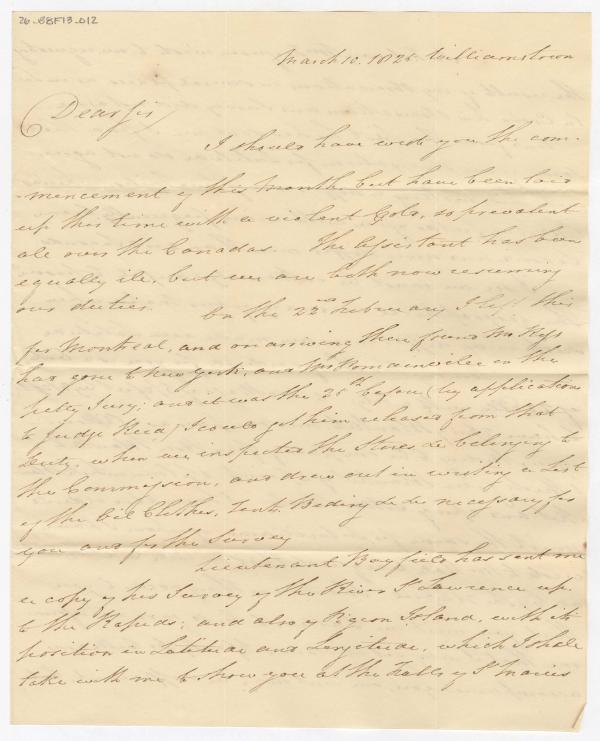 26-B8F13-012
March 10. 1826 Williamstown
Dear Sir
I should have wrote you the com-
mencement of this Month, but have been laid
up this time with a violent Cold, so prevalent
all over the Canadas. The Assistant has been
equally ill, but we are both now resuming
our duties. On the 22nd February I left this
for Montreal, and on arriving there found Mr Hess
has gone to New York, and Mr Romainville on the
petty Jury; and it was the 25th before (by application
to Judge Reid) I could get him released from that
Duty, when we inspected the Stores &c belonging to
the Commission, and drew out in writing a List
of the Oil Clothes, Tents Beding &c &c necessary for
you and for the Survey
Lieutenant Bayfield has sent me
a copy of his Survey of the River St Lawrence up
to the Rapids; and also of Pigeon Island, with its
position in Latitude and Longitude, which I shall
take with me to show you at the Falls of St Maries